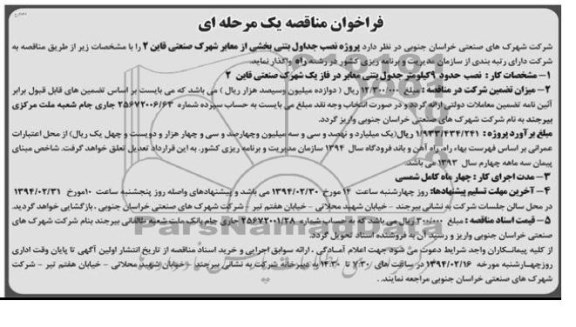 فراخوان مناقصه یک مرحله ای
شرکت شهرک های صنعتی خراسان جنوبی در نظر دارد پروژه نصب جداول بتنی بخشی از معابر شهرک صنعتی قاین ۲ را با مشخصات زیر از طریق مناقصه به
شرکت دارای رتبه بندی از سازمان مدیریت و برنامه ریزی کشور در رشته راه واگذار نماید.
۱- مشخصات کار : نصب حدود ۹ کیلومتر جدول بتنی معابر در فاز یک شهرک صنعتی قاین ۲
۲- میزان تضمین شرکت در مناقصه: مبلغ ۱۲/۳۰۰/۰۰۰ ریال ( دوازده میلیون وسیصد هزار ریال ) می باشد که می بایست بر اساس تضمین های قابل قبول برابر
آئین نامه تضمین معاملات دولتی ارائه گردد و در صورت انتخاب وجه نقد مبلغ می بایست به حساب سپرده شماره ۲۵۶۷۲۰۰۶/۶۳ جاری جام شعبه ملت مرکزی
بیرجند به نام شرکت شهرک های صنعتی خراسان جنوبی واریز گردد.
مبلغ برآورد پروژه : ۱/۹۳۴/۲۴۱ ریال(یک میلیارد و نهصد و سی و سه میلیون وچهارصد و سی و چهار هزار و دویست و چهل یک ریال) از محل اعتبارات
عمرانی بر اساس فهرست بهاء راه، راه آهن و باند فرودگاه سال ۱۳۹۴ سازمان مدیریت و برنامه ریزی کشور. به این قرارداد تعدیل تعلق خواهد گرفت. شاخص مبنای
پیمان سه ماهه چهارم سال ۱۳۹۳ می باشد.
۳- مدت اجرای کار : چهار ماه کامل شمسی
۴- آخرین مهلت تسلیم پیشنهادها: روز چهارشنبه ساعت ۱۴ مورخ ۱۳۹۴/۰۲/۳۰ می باشد و پیشنهادهای واصله روز پنجشنبه ساعت ۱۰ مورخ ۱۳۹۴/۰۲/۳۱
در محل سالن جلسات شرکت به نشانی بیرجند - خیابان شهید محلاتی - خیابان هفتم تیر - شرکت شهرک های صنعتی خراسان جنوبی، بازگشایی خواهد گردید.
۵- قیمت اسناد مناقصه : مبلغ ۳۰۰/۰۰۰ ریال می باشد که به حساب شماره ۲۵۶۷۲۰۰۱/۲۸ جاری جام بانک ملت شعبه طالقانی بیرجند بنام شرکت شهرک های
صنعتی خراسان جنوبی واریز و رسید آن به فروشنده اسناد تحویل گردد.
از کلیه پیمانکاران واجد شرایط دعوت می شود جهت اعلام آمادگی ، ارائه سوابق اجرایی و خرید اسناد مناقصه از تاریخ انتشار اولین آگهی تا پایان وقت اداری
روزچهارشنبه مورخه ۱۳۹۴/۰۲/۱۶ در ساعت های ۷/۳۰ تا ۱۴/۳۰ به دبیرخانه شرکت به نشانی بیرجند - خیابان شهید محلاتی - خیابان هفتم تیر - شرکت
شهرک های صنعتی خراسان جنوبی مراجعه نمایند .
ParsNamadData